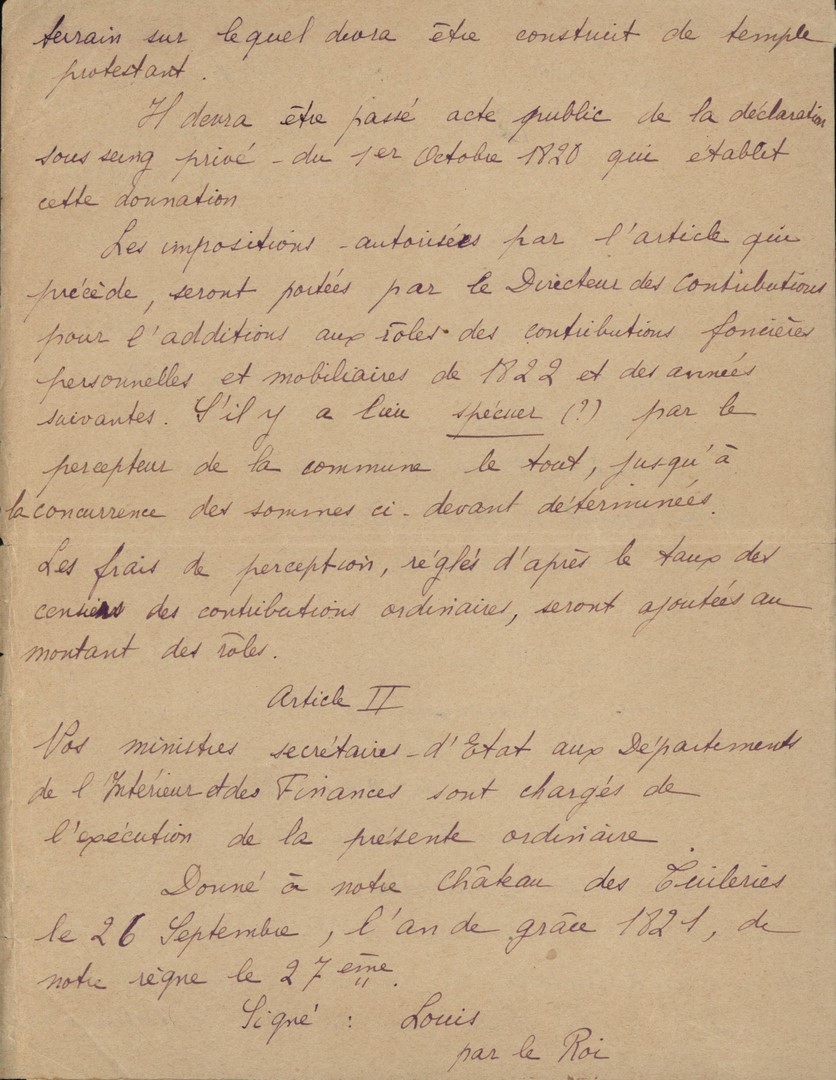 terrain sur lequel devra être construit de temple
protestant.
Il devra être passé acte public de la déclaration
sous seing privé - du 1er Octobre 1820 qui établit
cette donnation
Les impositions autorisées par l'article qui
précède, seront portées par le Directeur des Contributions
pour l'additions aux rôles des contributions foncières
personnelles et mobiliaires de 1822 et des années
suivantes. S'il y a lieu spécuer (?) par le
percepteur de la commune le tout, jusqu'à
la concurrence des sommes ci-devant déterminées.
Les frais de perception, réglés d'après le taux des
des contributions ordinaires, seront ajoutées au
montant des rôles.
Article II
Vos ministres secrétaires-d'Etat aux Départements
de l'Intérieur et des Finances sont chargés de
l'exécution de la présente ordinaire.
Donné à notre Château des Tuileries
le 26 Septembre, l'an de grâce 1821, de
notre règne le 27ème.
Signé : Louis
par le Roi